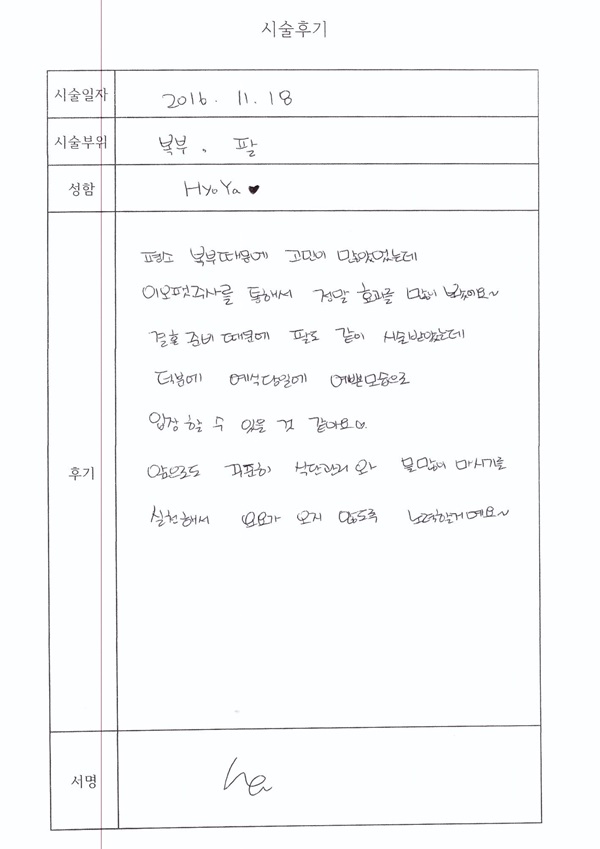 시술후기
시술일자 2016. 11. 18
시술부위 복부, 팔
성함 HyoYa ♥
후기
평소 복부때문에 고민이 많았었는데
이오펫주사를 통해서 정말 효과를 많이 봤어요~
결혼 준비 때문에 팔도 같이 시술받았는데
덕분에 예식당일에 예쁜모습으로
입장 할 수 있을 것 같아요♡
앞으로도 꾸준히 식단관리와 물많이 마시기를
실천해서 요요가 오지 않도록 노력할게예요~
서명